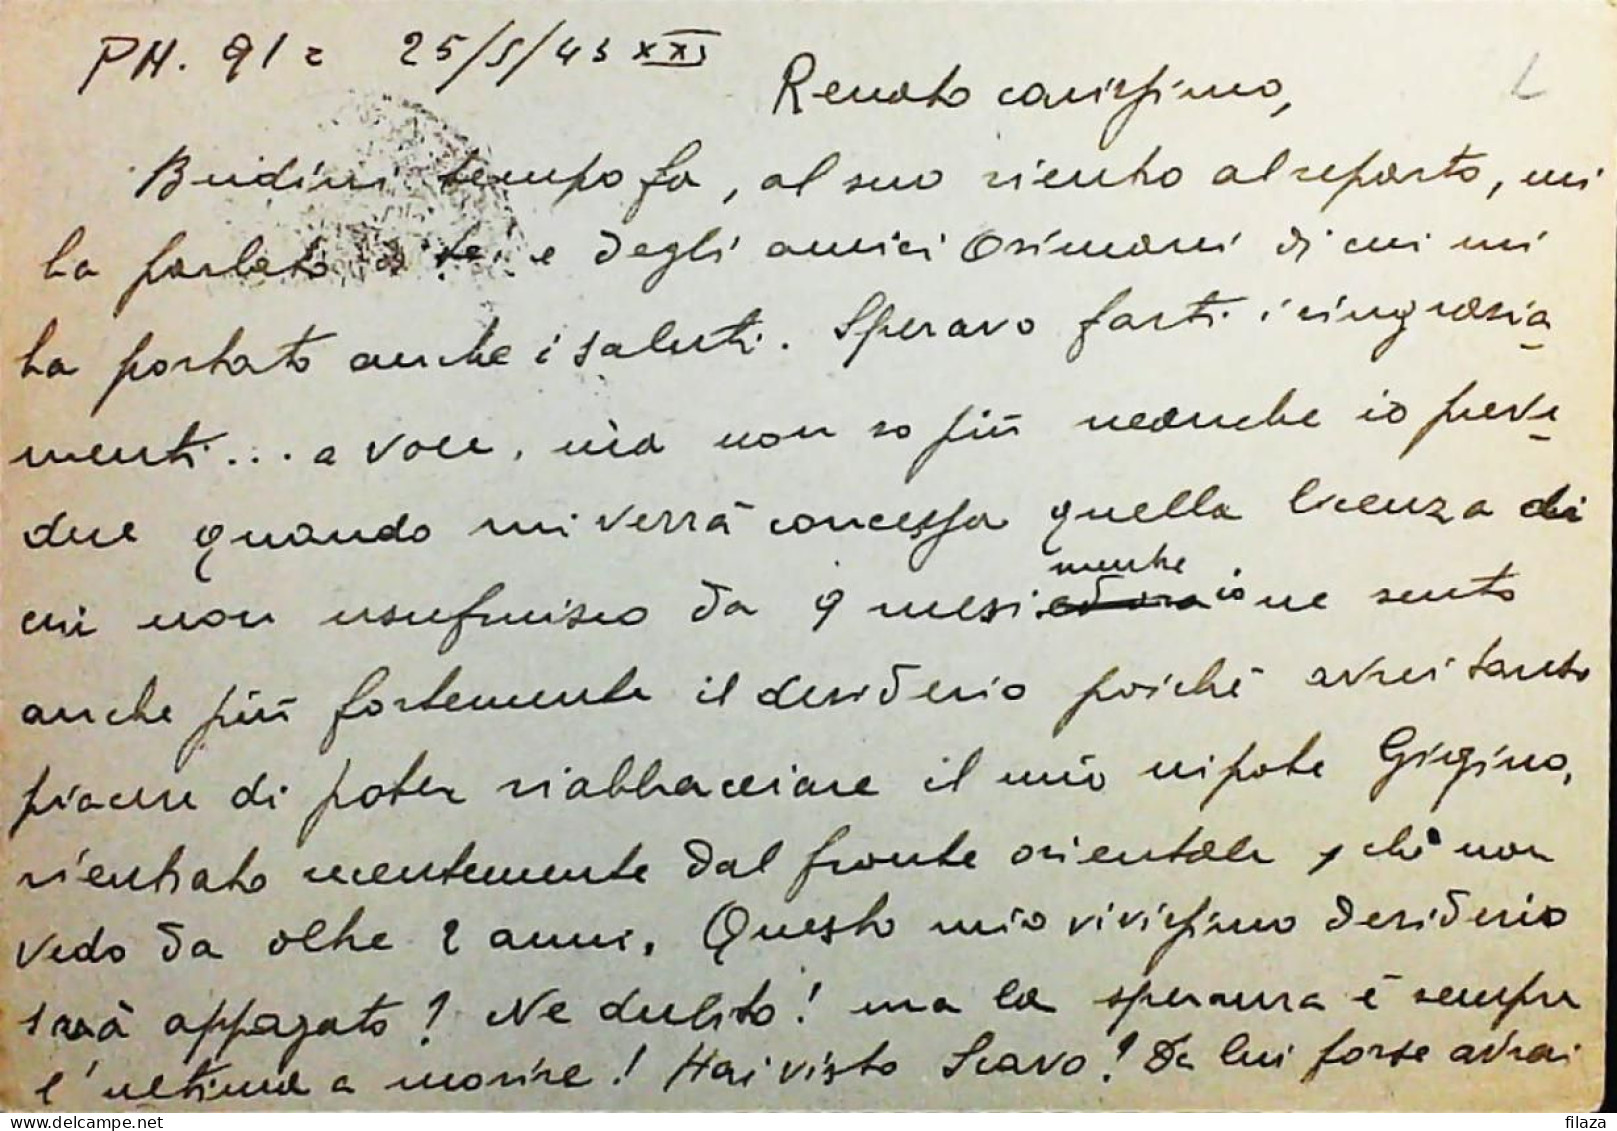 PM. 91 25/5/43 XXI
Renato carissimo,
Budini tempo fa, al suo rientro al reparto, mi
ha parlato di te e degli amici Osimani di cui mi
ha portato anche i saluti. Speravo farti i ringrazia
menti... a voce, ma non so più neanche io preve
dere quando mi verrà concessa quella licenza di
cui non usufruisco da 9 mesi mentre io ne sento
anche più fortemente il desiderio poiché avrei tanto
piacere di poter riabbracciare il mio nipote Gigino,
rientrato recentemente dal fronte orientale, che non
vedo da oltre 2 anni. Questo mio vivissimo desiderio
sarà appagato? Ne dubito! ma la speranza è sempre
l'ultima a morire! Hai visto Scavo? Da lui forse avrai
filaza